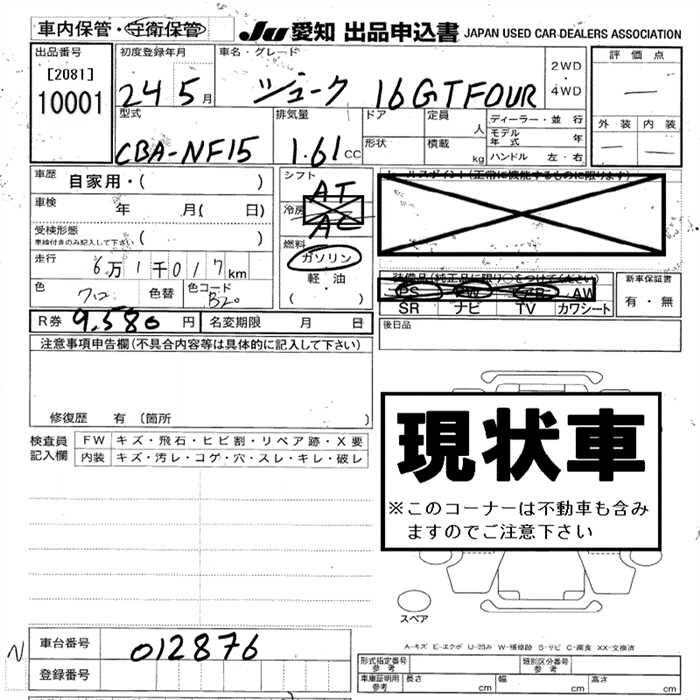 車内保管・守衛保管 JU 愛知 出品申込書 JAPAN USED CAR DEALERS ASSOCIATION
出品番号 初度登録年月 車名・グレード 評価点
[2081] 2WD
10001 24 5月 ジューク 16GTFOUR ・4WD
型式 排気量 ドア 定員 人 ディーラー・並行 外装 内装
CBA-NF15 1.61cc 形状 積載 kg モデル年式 年
ハンドル 左・右
車歴 自家用・( ) シフト AT セールスポイント(正常に機能するものに限ります)
車検 年 月( 日) 冷房 AC
受検形態
車検付きのみ記入して下さい ( ) 燃料
走行 6万1千017km ガソリン
軽・油
( )
色 クロ 色替 色コード B20
装備品(純正品に限り○をつけてください) 新車保証書
PS PW AB AW 有・無
SR ナビ TV カワシート
R券 9,580円 名変期限 月 日 後日品
注意事項申告欄(不具合内容等は具体的に記入して下さい)
修復歴 有(箇所 )
検査員記入欄 FW キズ・飛石・ヒビ割・リペア跡・X要
内装 キズ・汚レ・コゲ・穴・スレ・キレ・破レ
現状車
※このコーナーは不動車も含み
ますのでご注意下さい
スペア
A-キズ E-エクボ U-凹み W-補修跡 S-サビ C-腐食 XX-交換済
N 車台番号 012876
登録番号
形式指定番号 参考 類別区分番号 参考
車庫証明用 参考 長さ cm 幅 cm 高さ cm